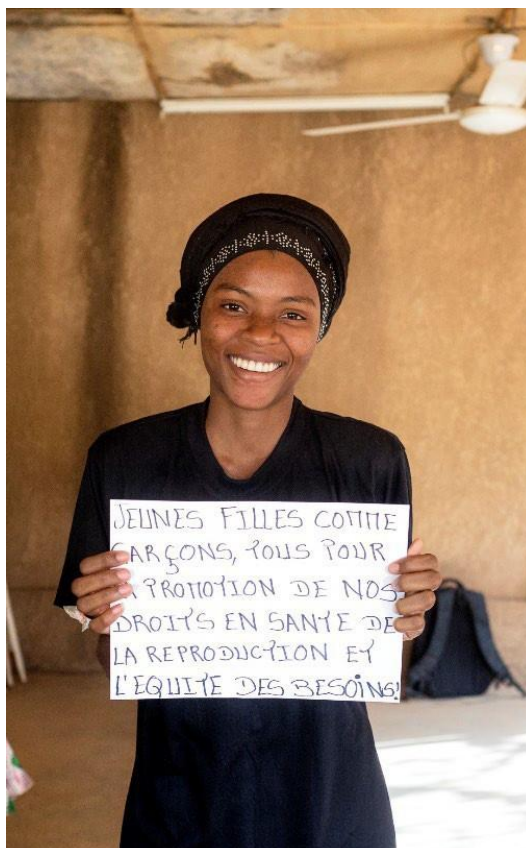 JEUNES FILLES COMME
GARÇONS, TOUS POUR
LA PROMOTION DE NOS
DROITS EN SANTE DE
LA REPRODUCTION ET
L'EQUITE DES BESOINS!